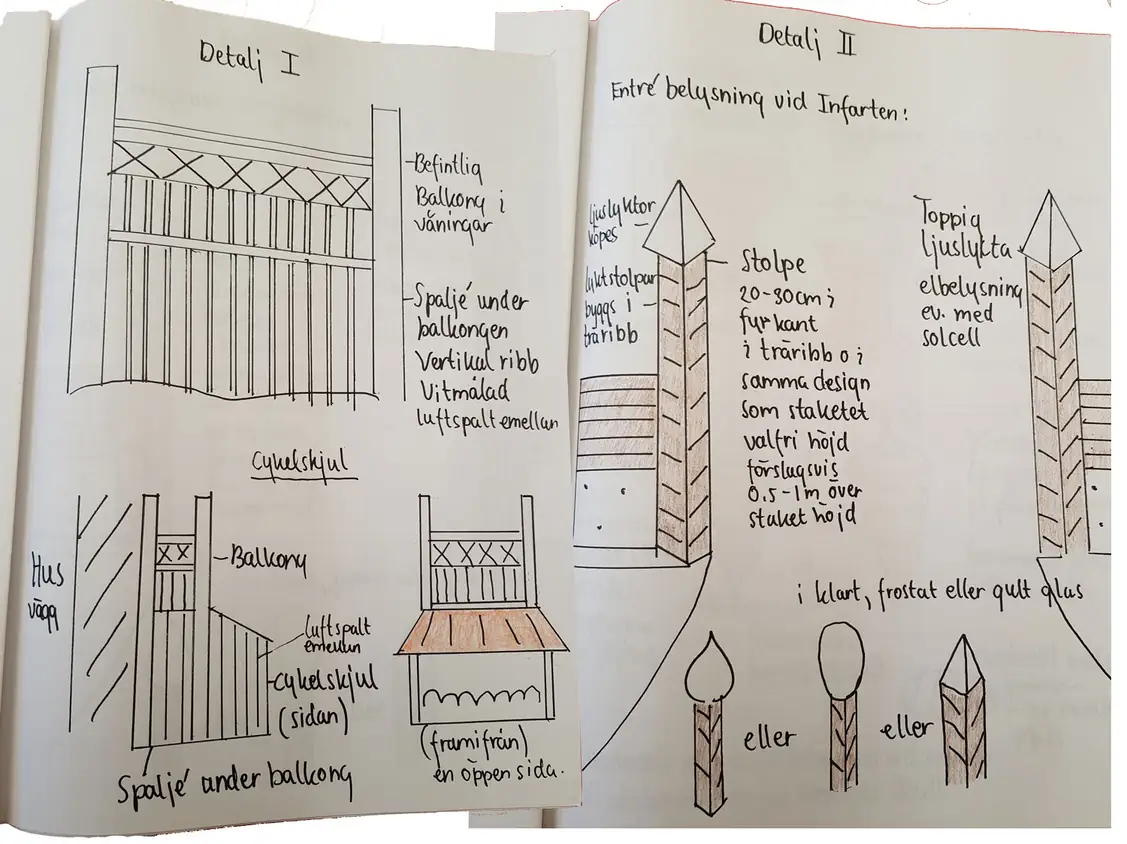 Detalj I
Befintlig
Balkong i
våningar
Spaljé under
balkongen
Vertikal ribb
Vitmålad
luftspalt emellan
Cykelskjul
Hus
vägg
Balkong
luftspalt
emellan
cykelskjul
(sidan)
Spaljé under balkong
(framifrån)
en öppen sida.
Detalj II
Entré belysning vid Infarten:
ljuslyktor
köpes
lyktstolpar
byggs i
träribb
Stolpe
20-30cm i
fyrkant
i träribb o i
samma design
som staketet
valfri höjd
förslagsvis
0.5-1m över
staket höjd
Toppig
ljuslykta
elbelysning
ev. med
solcell
i klart, frostat eller gult glas
eller
eller